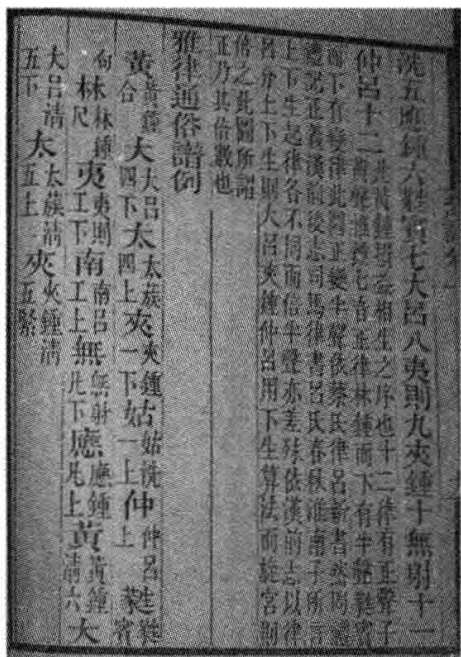 洗五應鍾六蕤賓七大呂八夷則九夾鍾十無射十一
仲呂十二
相生之序也十二律有正聲子
正律林鍾而下有半聲蕤賓
而下有變律此圖正變半聲依蔡氏律呂新書然周禮
禮記正義漢前後志司馬律書呂氏春秋淮南子所言
上下生起律各不同而倍半聲亦差殊依漢前志以律
呂分上下生則大呂夾鍾仲呂用下生算法而旋宮則
倍之此圖所謂
正乃其倍數也
雅律通俗譜例
黃黃鍾合大大呂四下太太蔟四上夾夾鍾一下姑姑洗一上仲仲呂上蕤蕤賓
勾林林鍾尺夷夷則工下南南呂工上無無射凡下應應鍾凡上黃黃鍾清六大
大呂清五下太太蔟清五上夾夾鍾清五緊